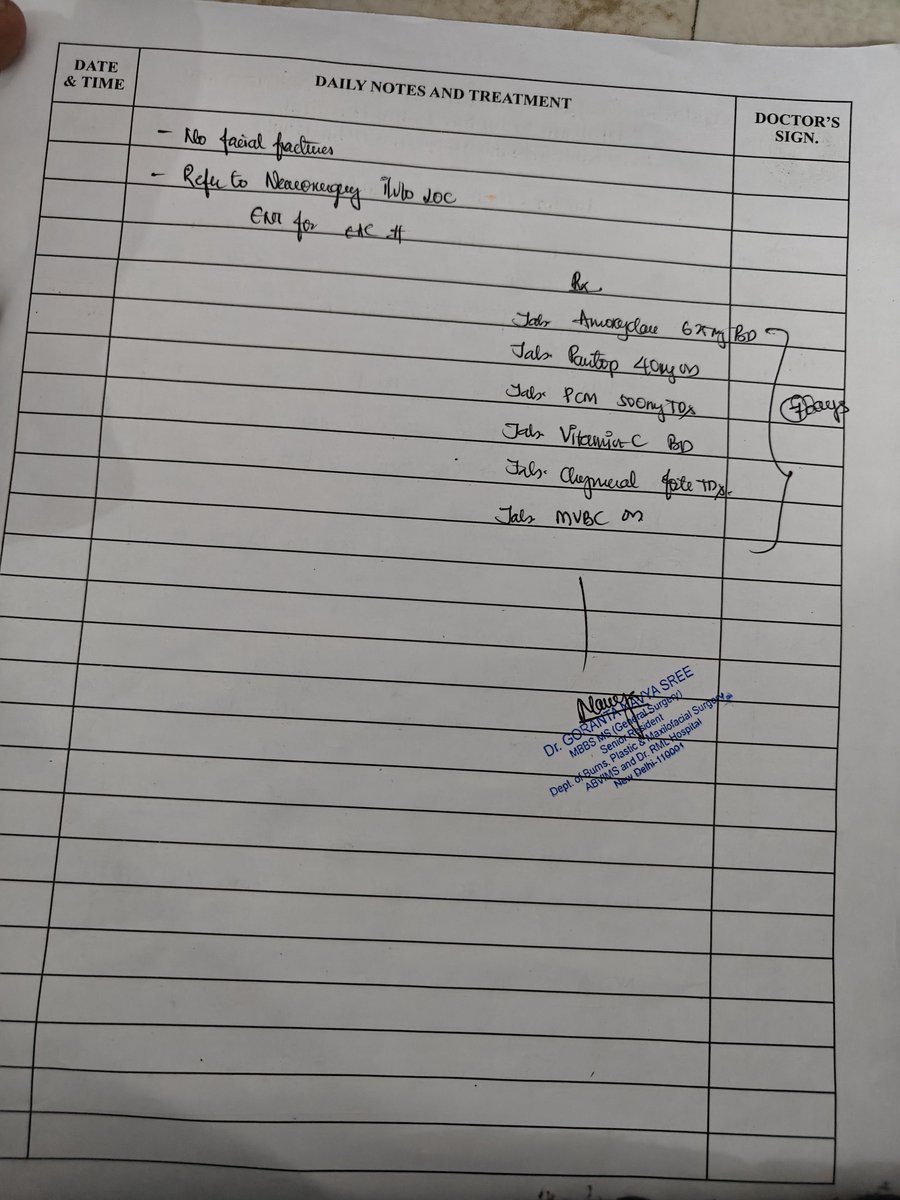 DATE & TIME
DAILY NOTES AND TREATMENT
DOCTOR'S SIGN.
- No facial fractures
- Refer to Neurosurgery i/v/o LOC
ENT for EAC #
Rx
Tab. Amoxyclav 625mg BD
Tab. Pantop 40mg OD
Tab. PCM 500mg TDS
Tab. Vitamin-C BD
Tab. Chymoral forte TDS
Tab. MVBC OD
7 Days
Dr. GORANTA NAVYA SREE
MBBS MS (General Surgery)
Senior Resident
Dept. of Burns, Plastic & Maxilofacial Surgery
ABVIMS and Dr. RML Hospital
New Delhi-110001